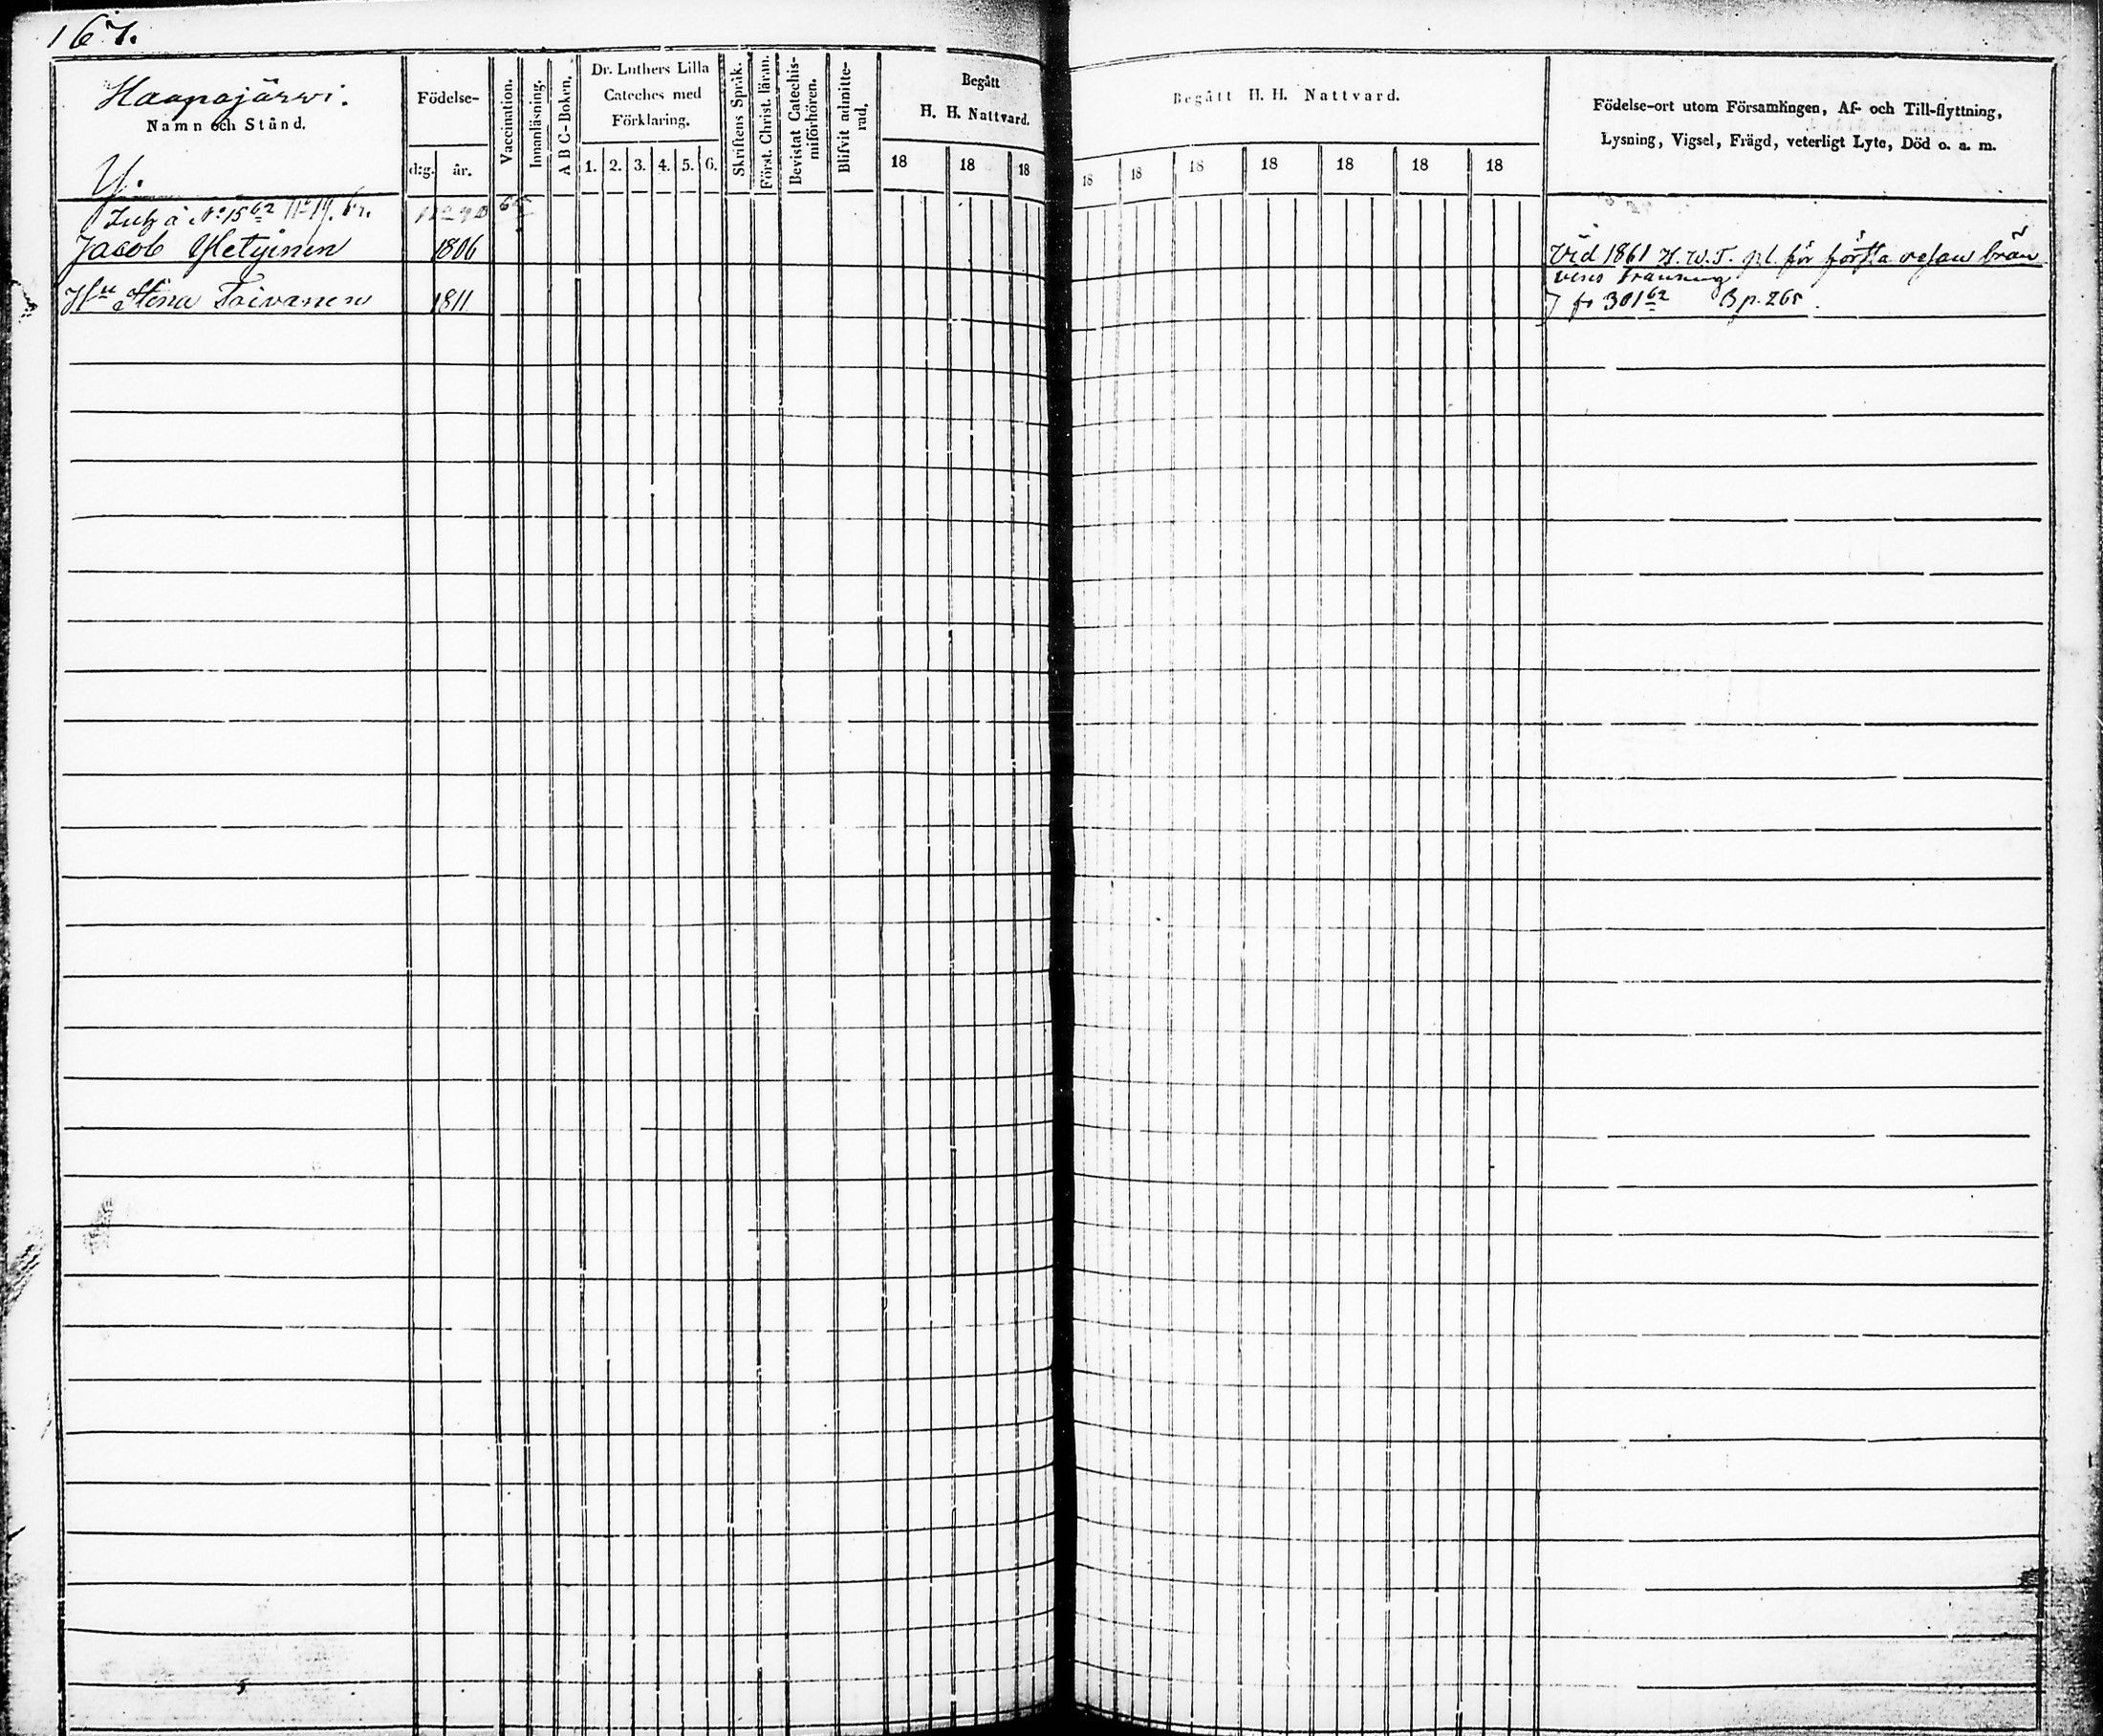 167.
Haapajärwi.
Namn och Stånd.
Födelse-
d:g. år.
Vaccination.
Innanläsning.
A B C-Boken.
Dr. Luthers Lilla
Cateches med
Förklaring.
1. 2. 3. 4. 5. 6.
Skriftens Språk.
Först. Christ. läran.
Bevistat Catechis-
miförhören.
Blifvit admitte-
rad.
Begått
H. H. Nattvard.
18 18 18
Begått H. H. Nattvard.
18 18 18 18 18 18 18
Födelse-ort utom Församlingen, Af- och Till-flyttning,
Lysning, Vigsel, Frägd, veterligt Lyte, Död o. a. m.
Jacob 1806
Vid 1861 H. W. T. pl. för första resan brän
vins
Hu Stina Toivanen 1811
301 62 B p. 265